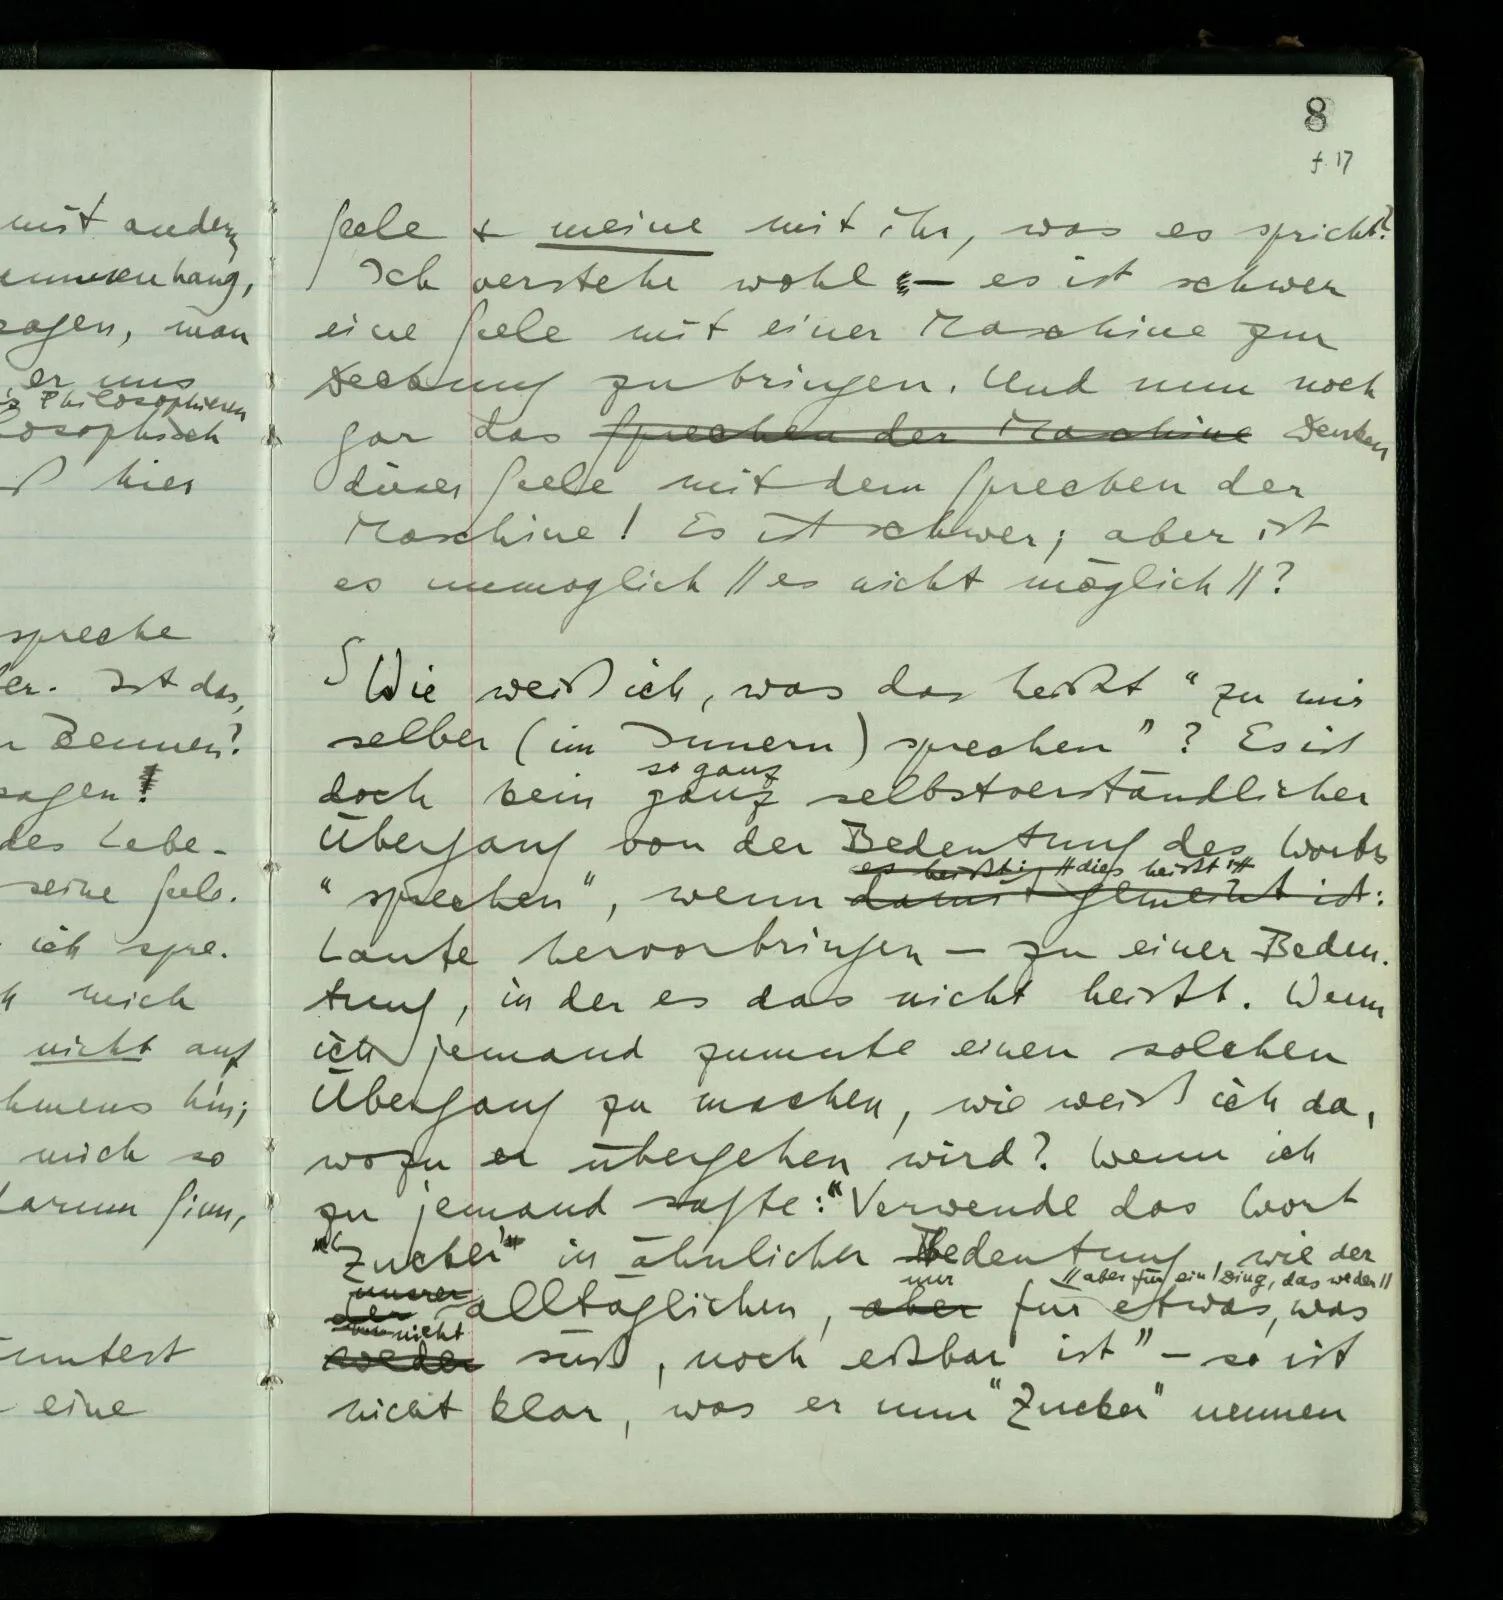 mit andern
sammenhang,
sagen, man
er uns
Philosophieren
losophisch
hier
spreche
er. Ist das,
kennen?
sagen!
des Lebe-
seine Seele.
ich spre-
mich
nicht auf
hmens hin;
mich so
darum Sinn,
eine
8
f. 17
Seele & meine mit ihr, was es spricht?
Ich verstehe wohl – es ist schwer
eine Seele mit einer Maschine zur
Deckung zu bringen. Und nun noch
gar das Sprechen der Maschine Denken
dieser Seele mit dem Sprechen der
Maschine! Es ist schwer; aber ist
es unmoglich // es nicht möglich // ?
S Wie weiß ich, was das heißt “zu mir
selber (im Innern) sprechen” ? Es ist
so ganz
doch kein ganz selbstverständlicher
Übergang von der Bedeutung des Worts
es heißt: // dies heißt: //
“sprechen”, wenn damit gemeint ist:
Laute hervorbringen – zu einer Bedeu-
tung, in der es das nicht heißt. Wenn
ich jemand zumute einen solchen
Übergang zu machen, wie weiß ich da,
wozu er übergehen wird? Wenn ich
zu jemand sagte: “Verwende das Wort
‘Zucker’ in ähnlicher Bedeutung, wie der
unsrer nur // aber für ein Ding, das weder //
der alltäglichen, aber für etwas, was
nicht
weder süß, noch eßbar ist” – so ist
nicht klar, was er nun “Zucker” nennen